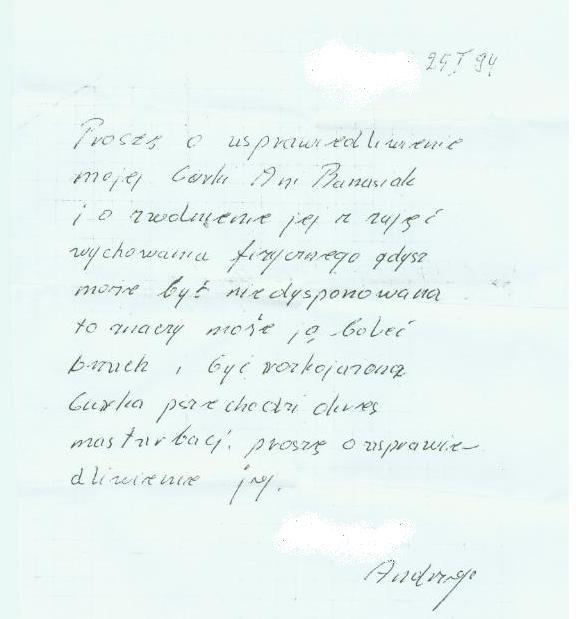 25 I 94
Proszę o usprawiedliwienie
mojej Curki Ani Banasiak
i o zwolnienie jej z zajęć
wychowania fizycznego gdysz
może być niedysponowana
to znaczy może ją boleć
bżuch i być rozkojażona
Curka przechodzi okres
masturbacji. proszę o usprawie-
dliwienie jej.
Andrzej